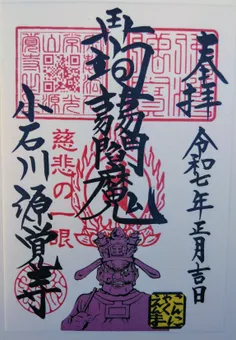 奉拝
令和七年正月吉日
蒟蒻閻魔
慈悲の一眼
小石川源覚寺
こんにゃくえんま